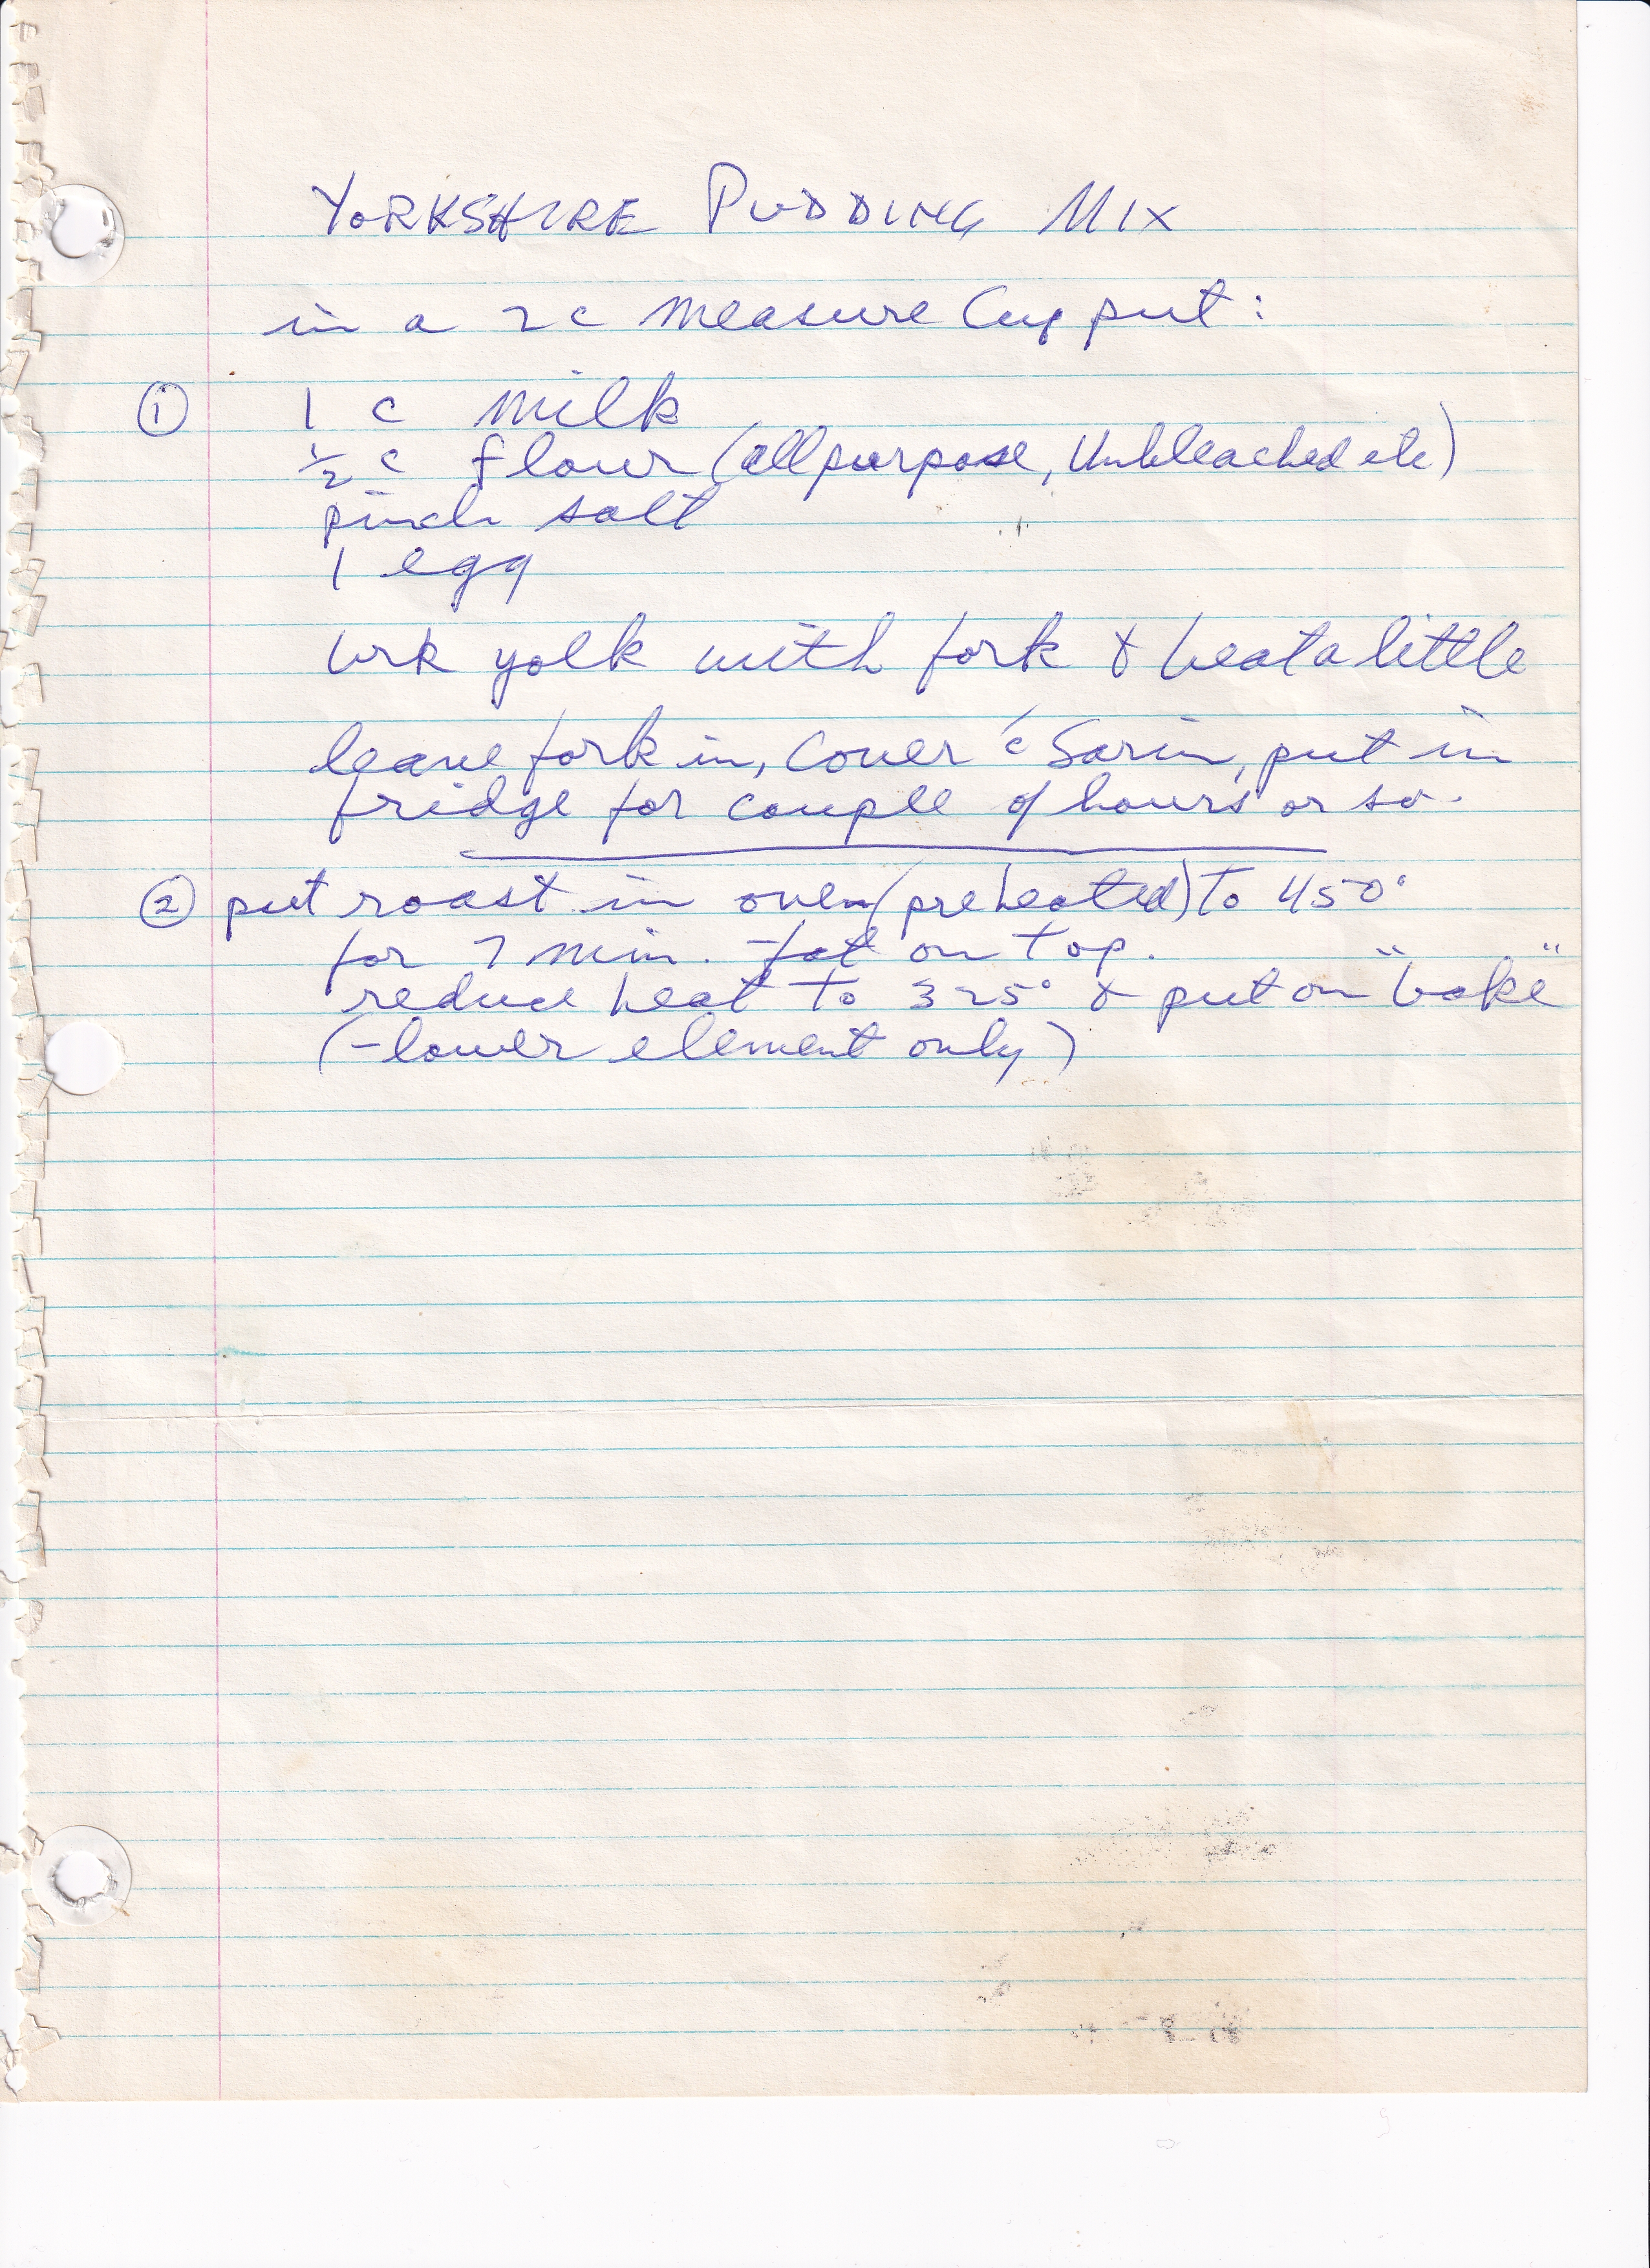 YORKSHIRE PUDDING MIX
in a 2 c measure Cup put:
① 1 c milk
½ c flour (all purpose, Unbleached etc)
pinch salt
1 egg
brk yolk with fork & beat a little
leave fork in, Cover c̄ Saran, put in
fridge for couple of hours or so.
② put roast in oven (preheated) to 450°
for 7 min. - fat on top.
reduce heat to 325° & put on "bake"
(- lower element only)